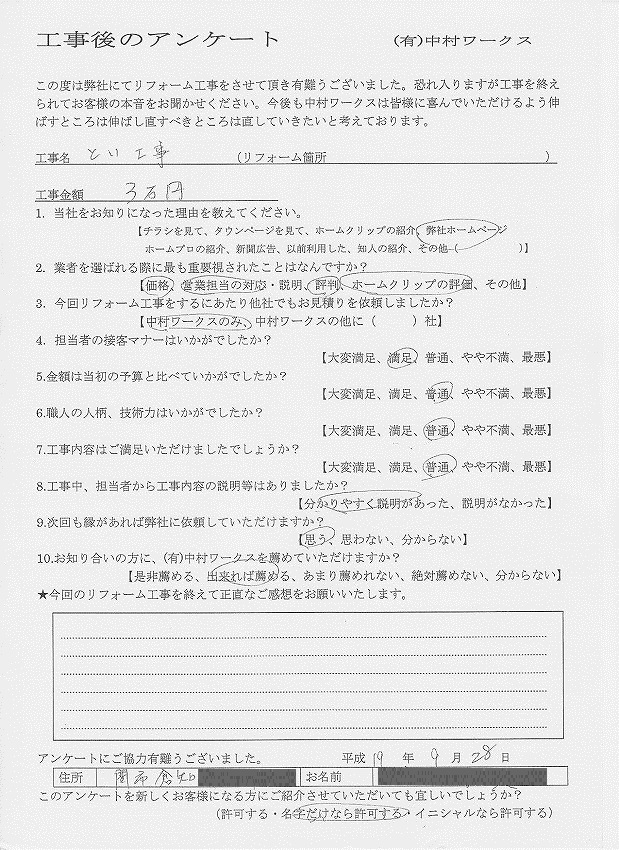 工事後のアンケート (有)中村ワークス
この度は弊社にてリフォーム工事をさせて頂き有難うございました。恐れ入りますが工事を終え
られてお客様の本音をお聞かせください。今後も中村ワークスは皆様に喜んでいただけるよう伸
ばすところは伸ばし直すべきところは直していきたいと考えております。
工事名 とい工事 (リフォーム箇所 )
工事金額 3万円
1. 当社をお知りになった理由を教えてください。
【チラシを見て、タウンページを見て、ホームクリップの紹介、弊社ホームページ
ホームプロの紹介、新聞広告、以前利用した、知人の紹介、その他( )】
2. 業者を選ばれる際に最も重要視されたことはなんですか?
【価格、営業担当の対応・説明、評判、ホームクリップの評価、その他】
3. 今回リフォーム工事をするにあたり他社でもお見積りを依頼しましたか?
【中村ワークスのみ、中村ワークスの他に( )社】
4. 担当者の接客マナーはいかがでしたか?
【大変満足、満足、普通、やや不満、最悪】
5.金額は当初の予算と比べていかがでしたか?
【大変満足、満足、普通、やや不満、最悪】
6.職人の人柄、技術力はいかがでしたか?
【大変満足、満足、普通、やや不満、最悪】
7.工事内容はご満足いただけましたでしょうか?
【大変満足、満足、普通、やや不満、最悪】
8.工事中、担当者から工事内容の説明等はありましたか?
【分かりやすく説明があった、説明がなかった】
9.次回も縁があれば弊社に依頼していただけますか?
【思う、思わない、分からない】
10.お知り合いの方に、(有)中村ワークスを薦めていただけますか?
【是非薦める、出来れば薦める、あまり薦めれない、絶対薦めない、分からない】
★今回のリフォーム工事を終えて正直なご感想をお願いいたします。
アンケートにご協力有難うございました。 平成 19 年 9 月 28 日
住所 関市倉知 お名前
このアンケートを新しくお客様になる方にご紹介させていただいても宜しいでしょうか?
(許可する・名字だけなら許可する・イニシャルなら許可する)